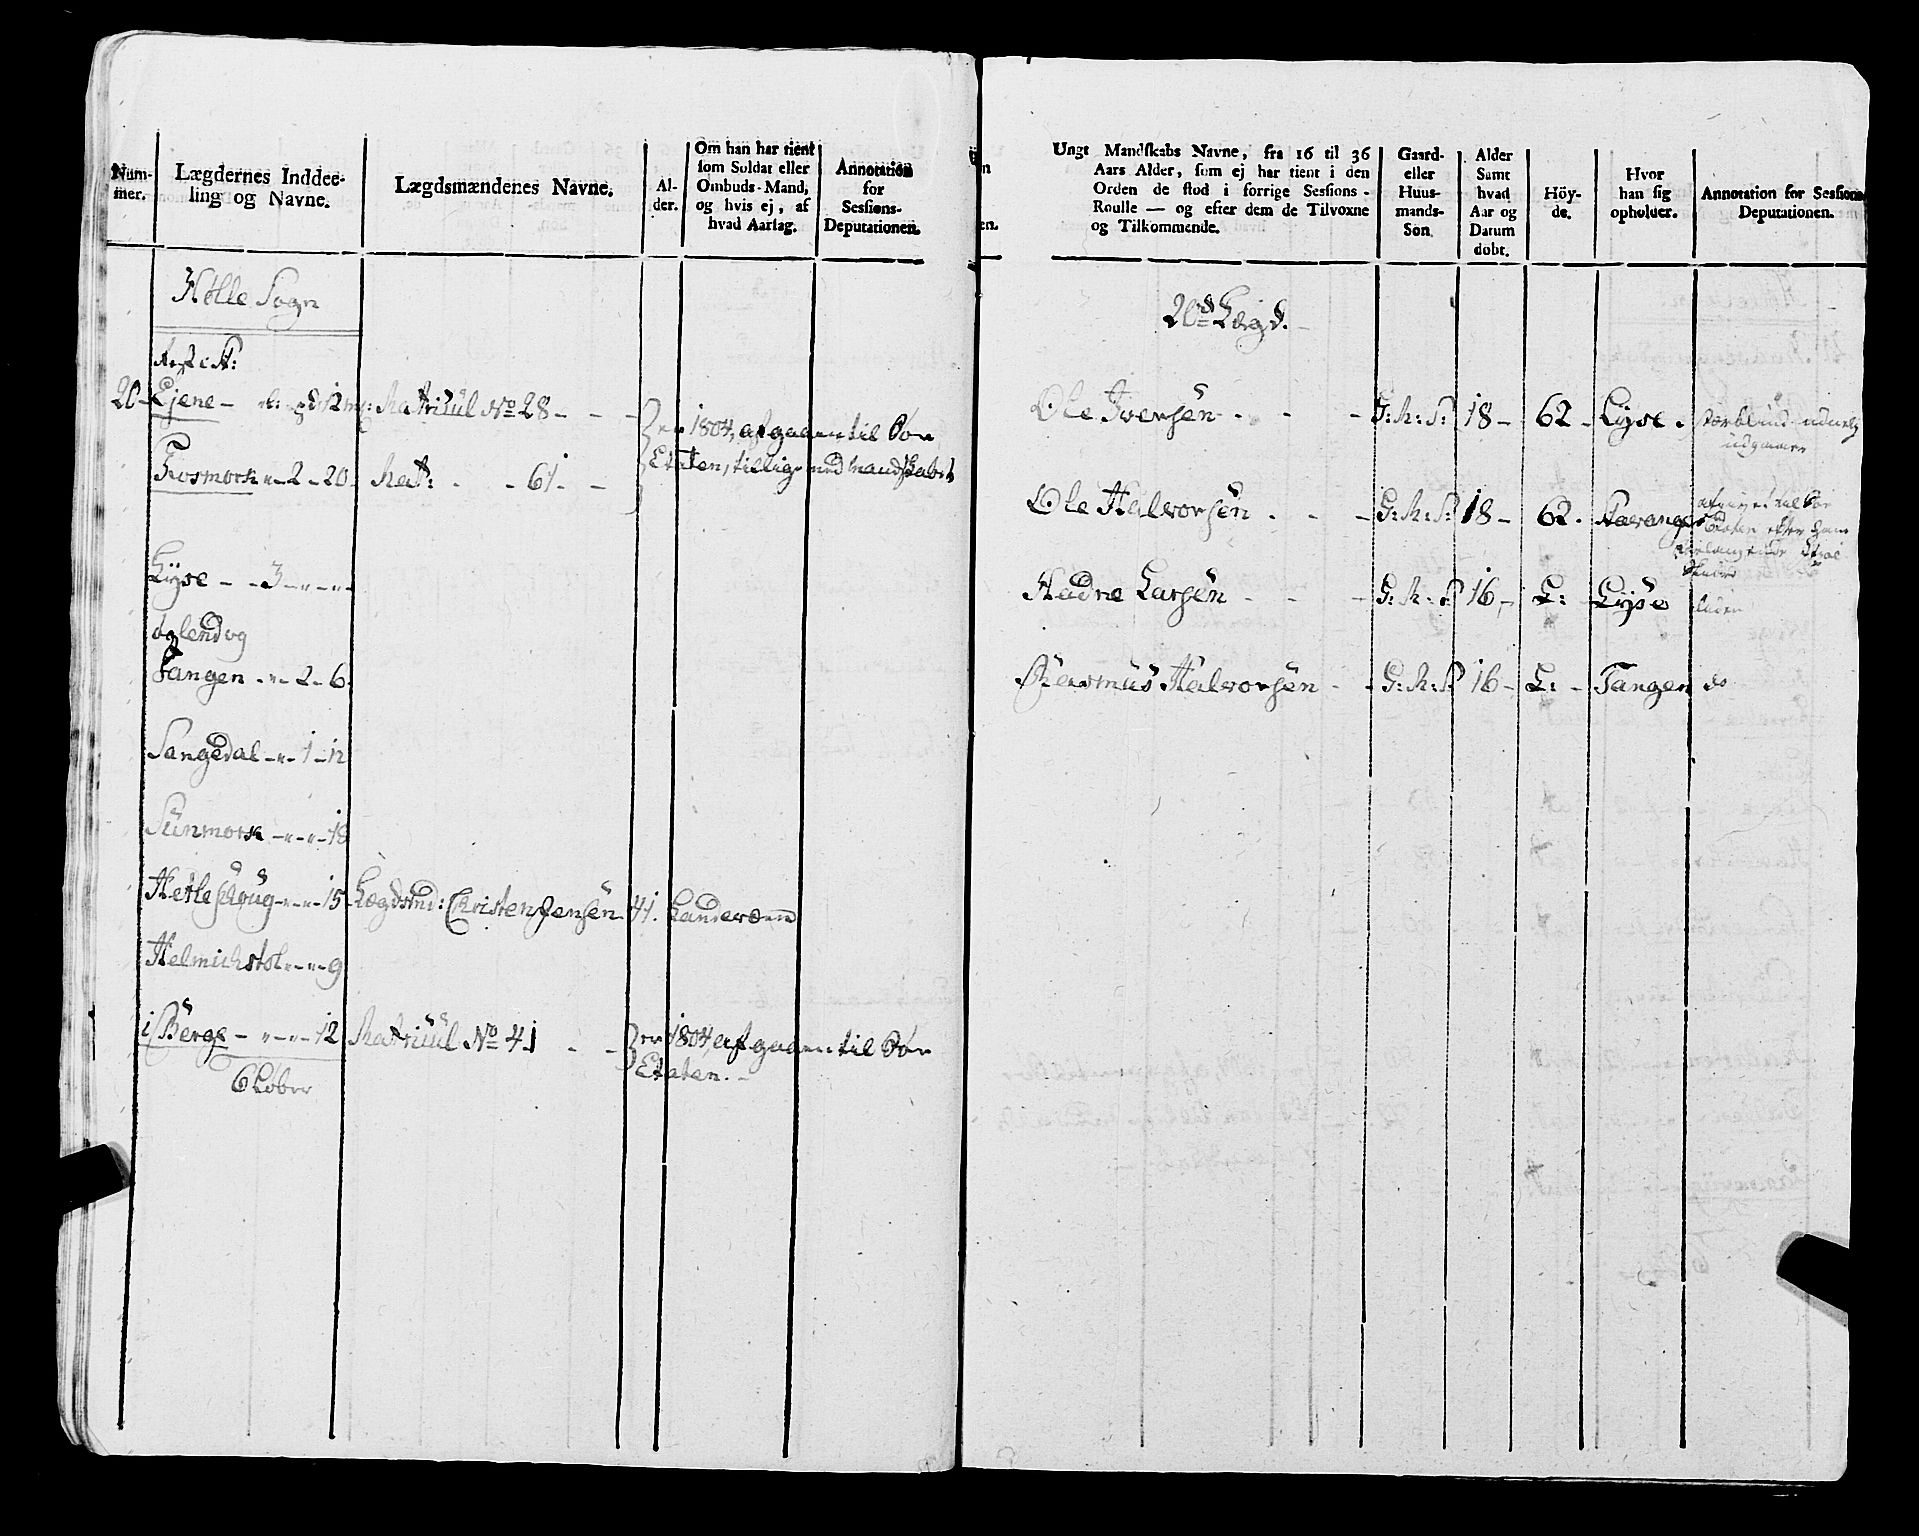 Num-
mer.
Lægdernes Inddee-
ling og Navne.
Lægdsmændenes Navne.
Al-
der.
Om han har tient
som Soldat eller
Ombuds-Mand,
og hvis ej, af
hvad Aarsag.
Annotation
for
Sessions-
Deputationen.
Hølle Sogn
20 Ejene - Matriiul No 28 - - -
er 1804, afgaaen til Søe
Etaten, tillige med Mandskabet
Fosmork " 2 - 20 Mat: - - 61 - -
Lyse - - 3 - " - " -
Tangen - " - 2 - 6
Sangedal - " - 1 - 12
Sünmork - " - " - 18
Hetleskoug - " - " - 15 Lægdsmd: Christen Jensen 41. Landeværn
Helmichstøl - " - " - 9
i Berge - " - " - 12 Matriiul No 41 - -
er 1804 afgaaen til Søe
Etaten. -
6 Løber
Ungt Mandskabs Navne, fra 16 til 36
Aars Alder, som ej har tient i den
Orden de stod i forrige Sessions-
Roulle — og efter dem de Tilvoxne
og Tilkommende.
Gaard-
eller
Huus-
mands-
Søn.
Alder
Samt
hvad
Aar og
Datum
døbt.
Höy-
de.
Hvor
han sig
opholder.
Annotation for Sessions
Deputationen.
20de Lægd. -
Ole Iversen - - - G: M: S: 18 - 62 - Lyse.
stærblind uduelig
udgaaer
Ole Halvorsen - - - G: M: S: 18 - 62. Stavanger
Aadne Larsen - - - G: M: S 16 - L: - Lyse liden
Rasmus Halvorsen - - G: M: S 16 - L: - Tangen do